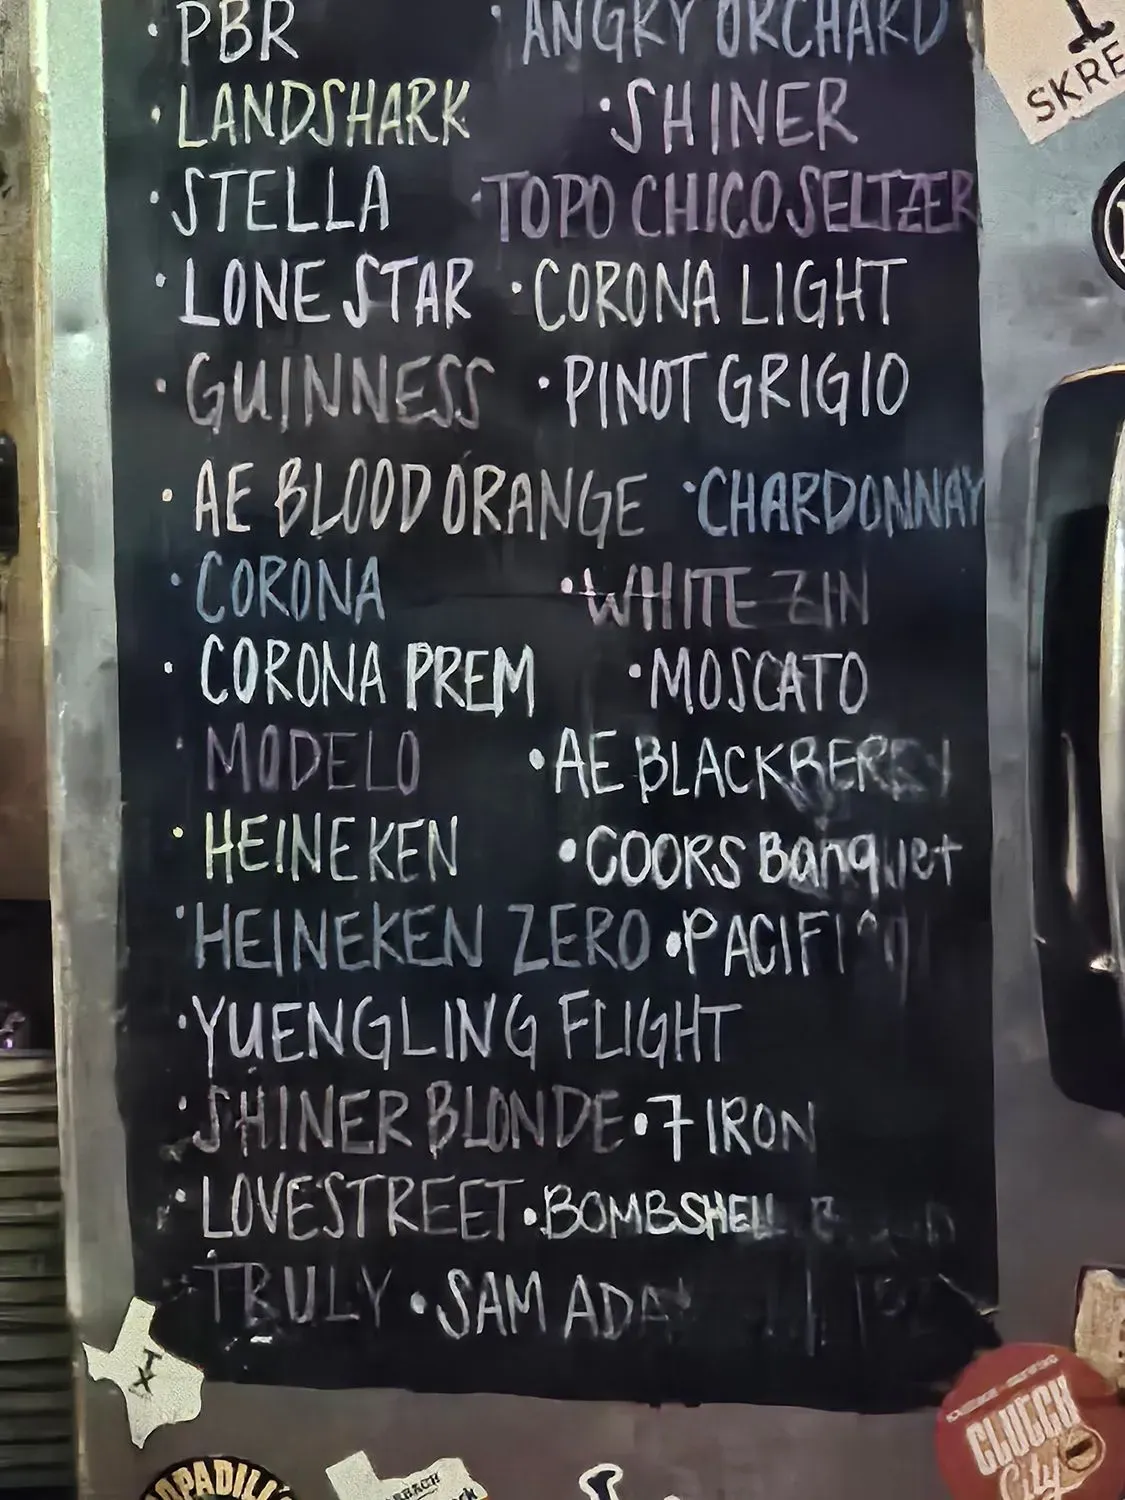 · PBR · ANGRY ORCHARD
· LANDSHARK · SHINER
· STELLA · TOPO CHICO SELTZER
· LONE STAR · CORONA LIGHT
· GUINNESS · PINOT GRIGIO
· AE BLOOD ORANGE · CHARDONNAY
· CORONA · WHITE ZIN
· CORONA PREM · MOSCATO
· MODELO · AE BLACKBERRY
· HEINEKEN · COORS Banquet
· HEINEKEN ZERO · PACIFICO
· YUENGLING FLIGHT
· SHINER BLONDE · 7 IRON
· LOVESTREET · BOMBSHELL
· TRULY · SAM ADA
SKRE
TX
CLUTCH
City